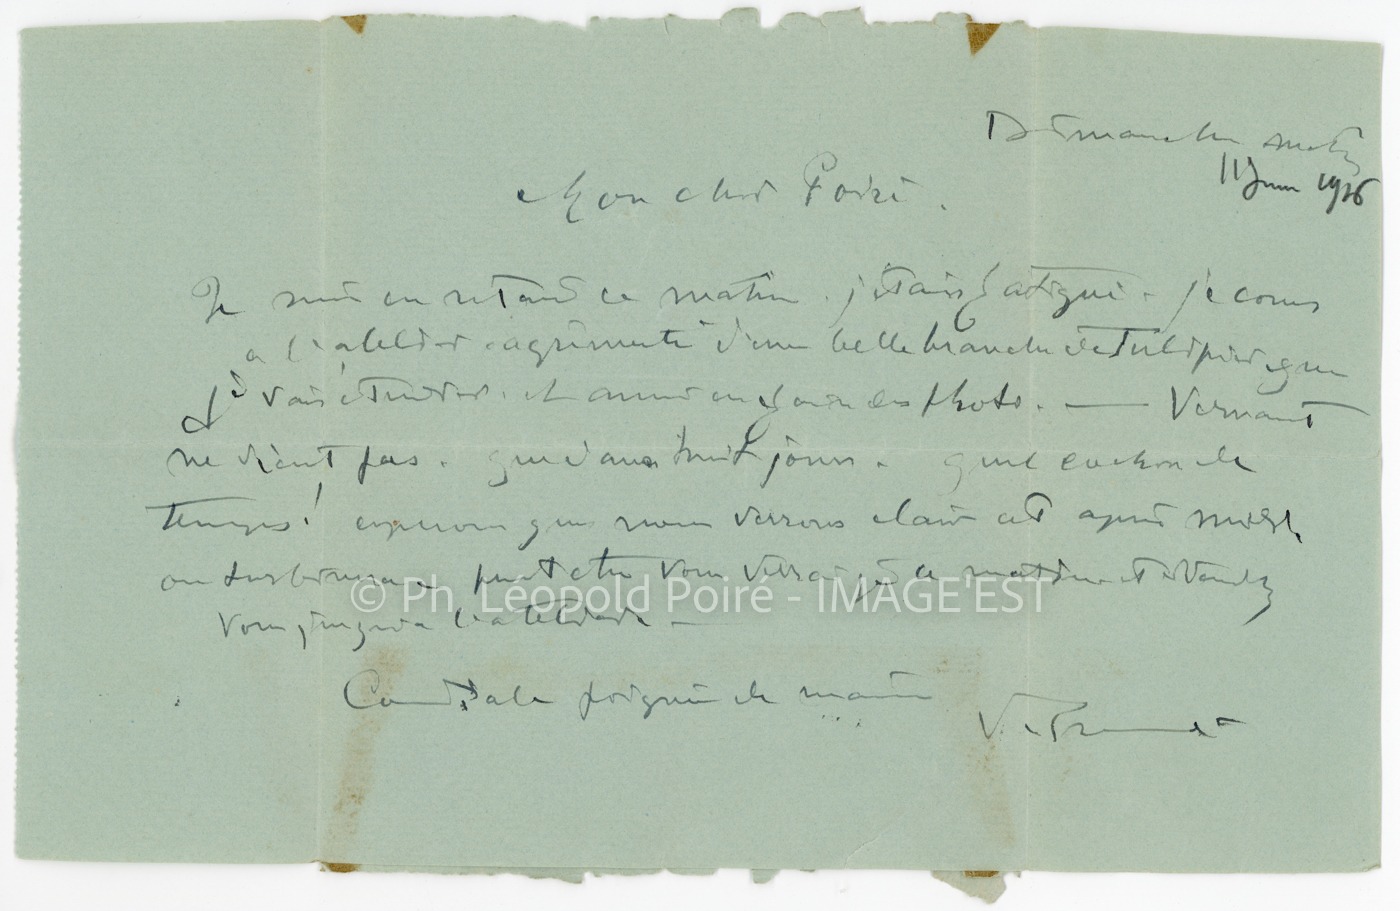 Dimanche matin
11 Juin 1916
Mon cher Poiré.
Je suis en retard ce matin. j'étais fatigué. je cours
à l'atelier agrémenté d'une belle branche de Tulipier que
je vais étudier. et en faire des photo. — Vernant
ne vient pas. que dans huit jours. quel cochon de
temps! espérons que nous verrons clair cet après midi.
on turbinera. peut etre vous verrai je ce matin et
vous jusqu'à l'atelier —
Cordiale poignée de main
V. Prouvé
© Ph. Léopold Poiré - IMAGE'EST